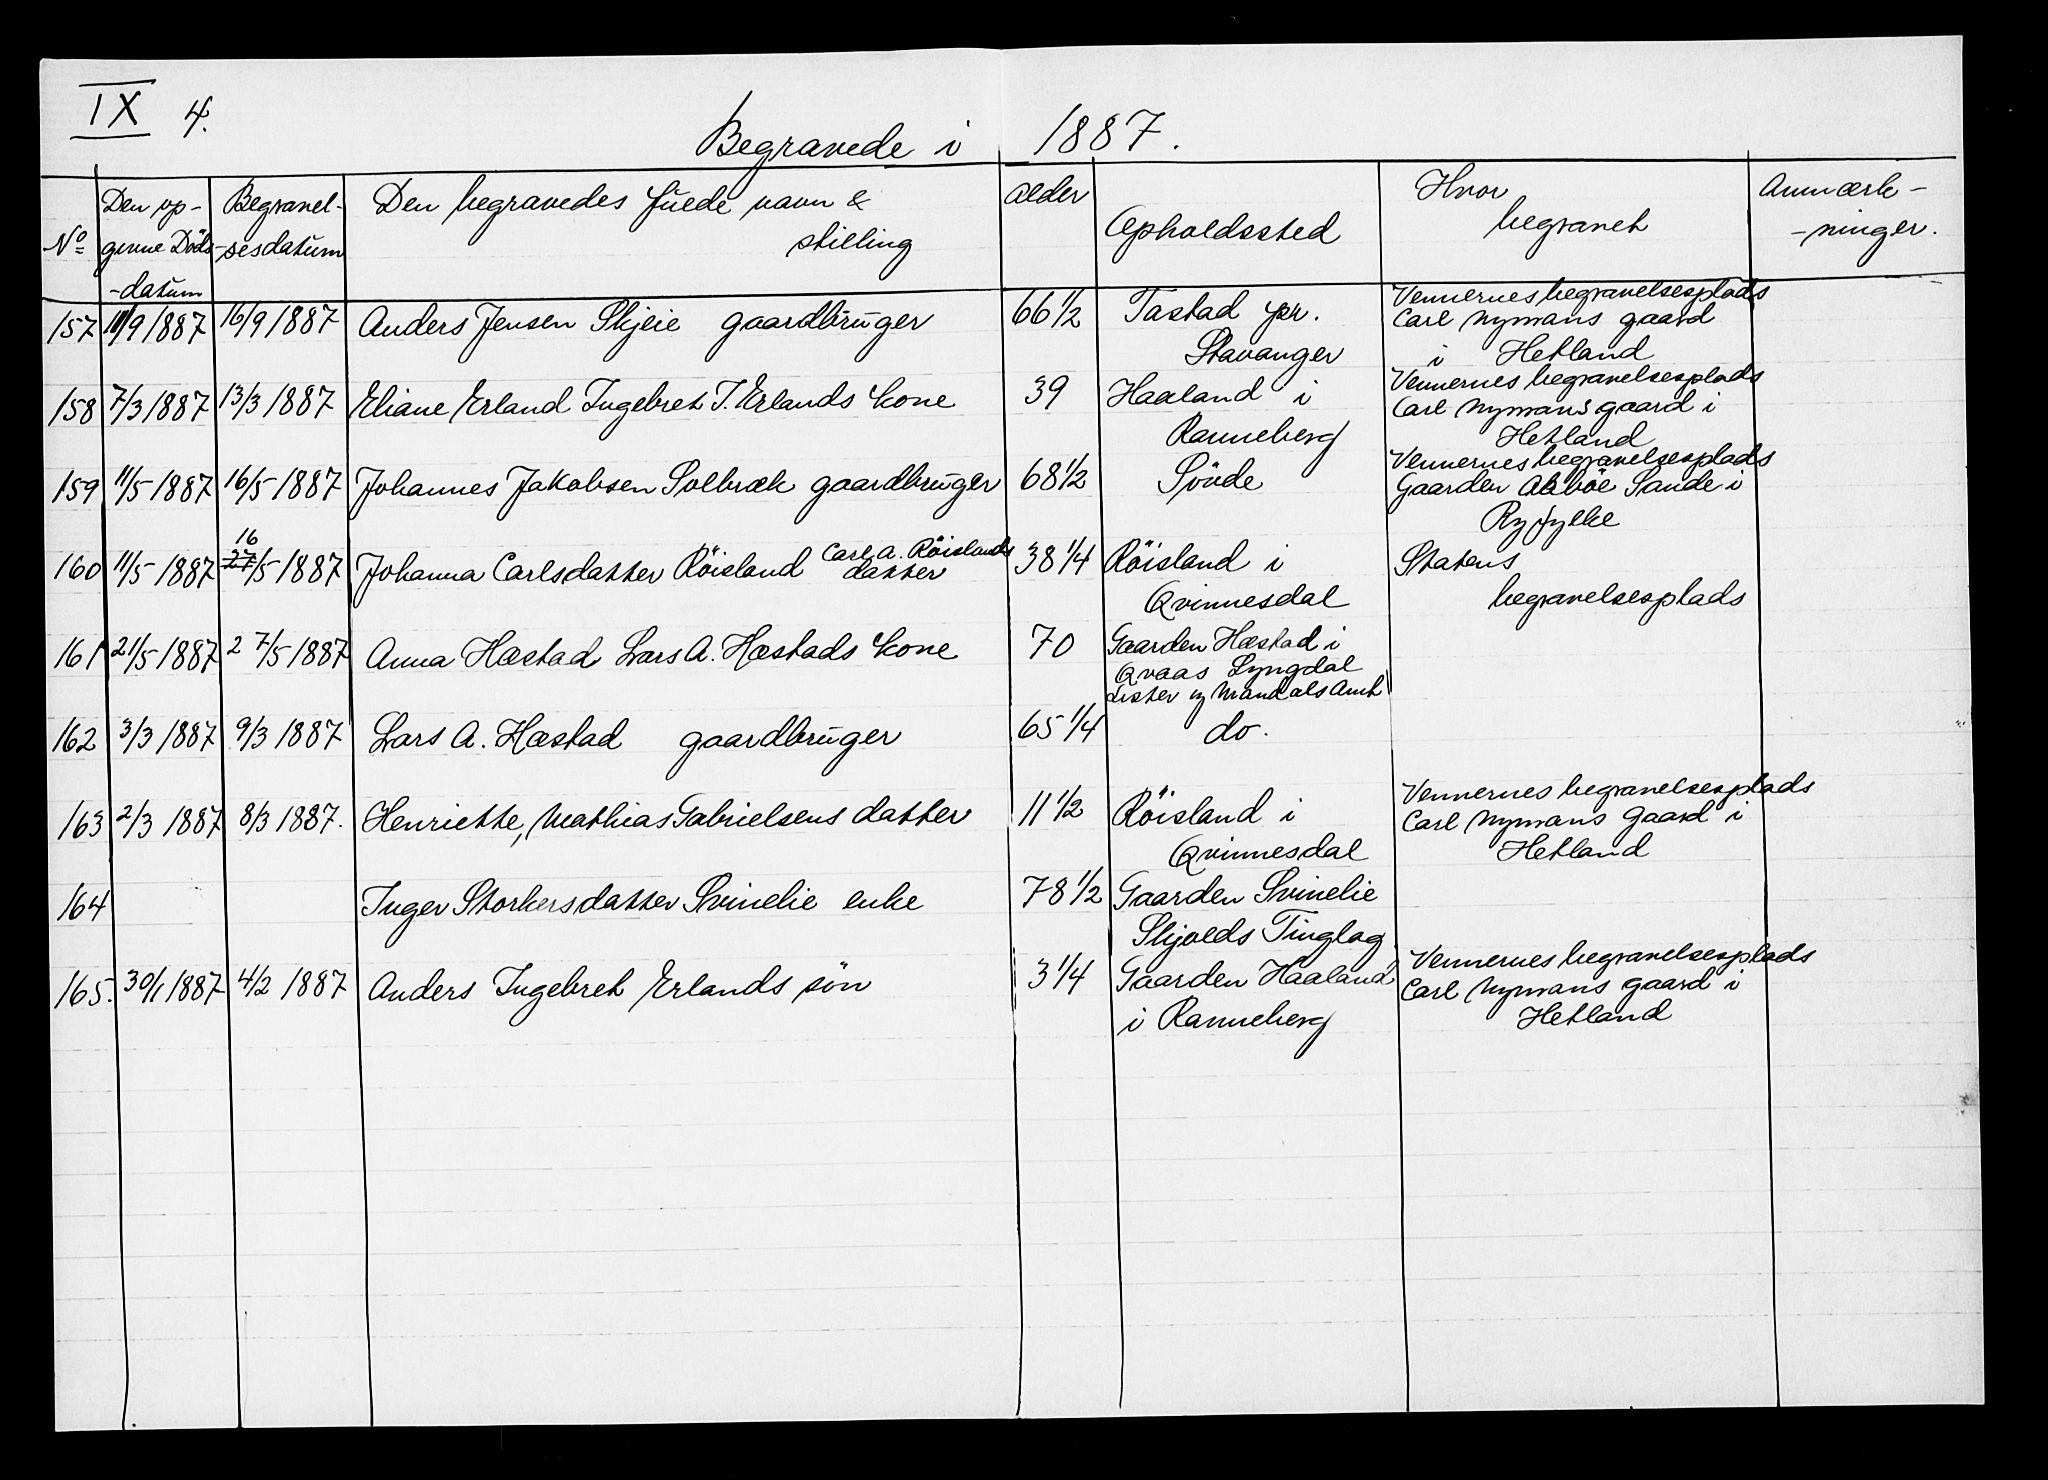 IX 4.
Begravede i 1887.
No Den op- Begravel- Den begravedes fulde navn & alder Opholdssted Hvor Anmærk-
givne Döds -sesdatum stilling begravet -ninger.
-datum
157 11/9 1887 16/9 1887 Anders Jensen Skjeie gaardbruger 66 1/2 Tastad pr. Vennernes begravelsesplads
Carl Nymans gaard
Stavanger i Hetland
158 7/3 1887 13/3 1887 Eliane Erland Ingebret T. Erlands kone 39 Haaland i Vennernes begravelsesplads
Carl Nymans gaard i
Ranneberg Hetland
159 11/5 1887 16/5 1887 Johannes Jakobsen Solbræk gaardbruger 68 1/2 Sövde Vennernes begravelsesplads
Gaarden Aböe Sande i
Ryfylke
16
160 11/5 1887 27/5 1887 Johanna Carlsdatter Röisland Carl A. Röislands datter 38 1/4 Röisland i Statens
Qvinnesdal begravelsesplads
161 21/5 1887 27/5 1887 Anna Hæstad Lars A. Hæstads kone 70 Gaarden Hæstad i
Qvaas Lyngdal
Lister og Mandals Amt
162 3/3 1887 9/3 1887 Lars A. Hæstad gaardbruger 65 1/4 do.
163 2/3 1887 8/3 1887. Henriette, Mathias Gabrielsens datter 11 1/2 Röisland i Vennernes begravelsesplads
Carl Nymans Gaard i
Qvinnesdal Hetland
164 Inger Storkersdatter Svinelie enke 78 1/2 Gaarden Svinelie
Skjolds Tinglag
165. 30/1 1887 4/2 1887 Anders Ingebret Erlands sön 3 1/4 Gaarden Haaland Vennernes begravelsesplads
Carl Nymans gaard i
i Ranneberg Hetland